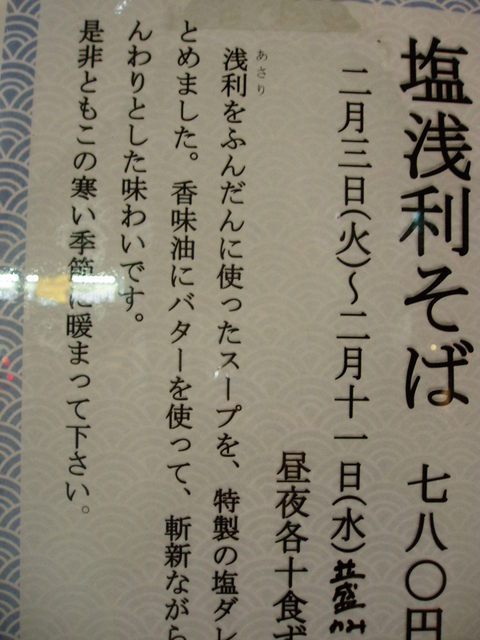 塩浅利そば 七八〇円
二月三日(火)～二月十一日(水)並盛のみ
昼夜各十食ず
あさり
浅利をふんだんに使ったスープを、特製の塩ダレ
とめました。香味油にバターを使って、斬新ながら
んわりとした味わいです。
是非ともこの寒い季節に暖まって下さい。